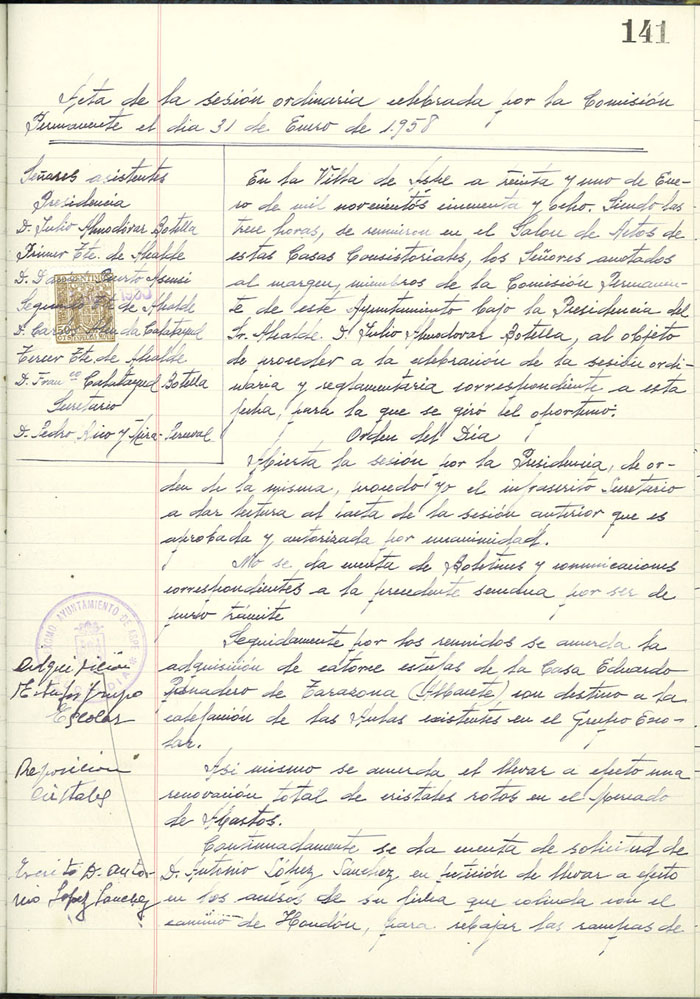 141
Acta de la sesión ordinaria celebrada por la Comisión
Permanente el dia 31 de Enero de 1958
Señores asistentes
Presidencia
D. Julio Almodóvar Botella
Primer Tte. de Alcalde
D. Puerto Asensi
Segundo Tte de Alcalde
D. Calatayud
Tercer Tte de Alcalde
D. Franco Calatayud Botella
Secretario
D. Pedro Rico y Mira-Perceval
En la Villa de Aspe a treinta y uno de Ene-
ro de mil novecientos cincuenta y ocho. Siendo las
trece horas, se reunieron en el Salon de Actos de
estas Casas Consistoriales, los Señores anotados
al margen, miembros de la Comisión Permanen-
te de este Ayuntamiento bajo la Presidencia del
Sr. Alcalde. D. Julio Almodovar Botella, al objeto
de proceder a la celebración de la sesión ordi-
naria y reglamentaria correspondiente a esta
fecha, para la que se giró el oportuno:
Orden del Día
Abierta la sesión por la Presidencia, de or-
den de la misma, procedo yo el infrascrito Secretario
a dar lectura al acta de la sesión anterior que es
aprobada y autorizada por unanimidad.
No se da cuenta de Boletines y comunicaciones
correspondientes a la precedente semana por ser de
puro trámite
EXCMO. AYUNTAMIENTO DE ASPE
Seguidamente por los reunidos se acuerda la
adquisición de catorce estufas de la Casa Eduardo
Panadero de Tarazona (Albacete) con destino a la
calefacción de las Aulas existentes en el Grupo Esco-
lar.
Adquisición
Estufas Grupo
Escolar
Asi mismo se acuerda el llevar a efecto una
renovación total de cristales rotos en el Mercado
de Abastos.
Reposicion
Cristales
Continuadamente se da cuenta de solicitud de
D. Antonio López Sánchez en petición de llevar a efecto
en los accesos de su finca que colinda con el
camino de Hondón, para rebajar las rampas de
Escrito D. Anto-
nio Lopez Sanchez